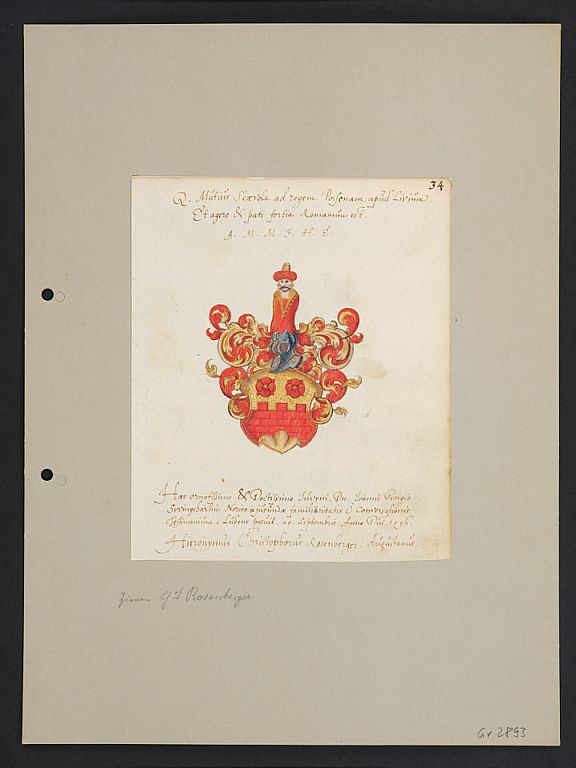 34
Q. Mutius Scævola ad regem Porsenam apud Livium
Et agere & pati fortia Romanum est.
A. M. M. I. H. E.
Hæc ornatissimo & Doctissimo Iuveni, Dn. Ioanni Georgio
familiaritatis & Conversationis
Lubens posuit. Septembris Anno Dni. 1596.
Hieronymus Christophorus Rosenberger. Augustanus.
Rosenberger
Gr 2893